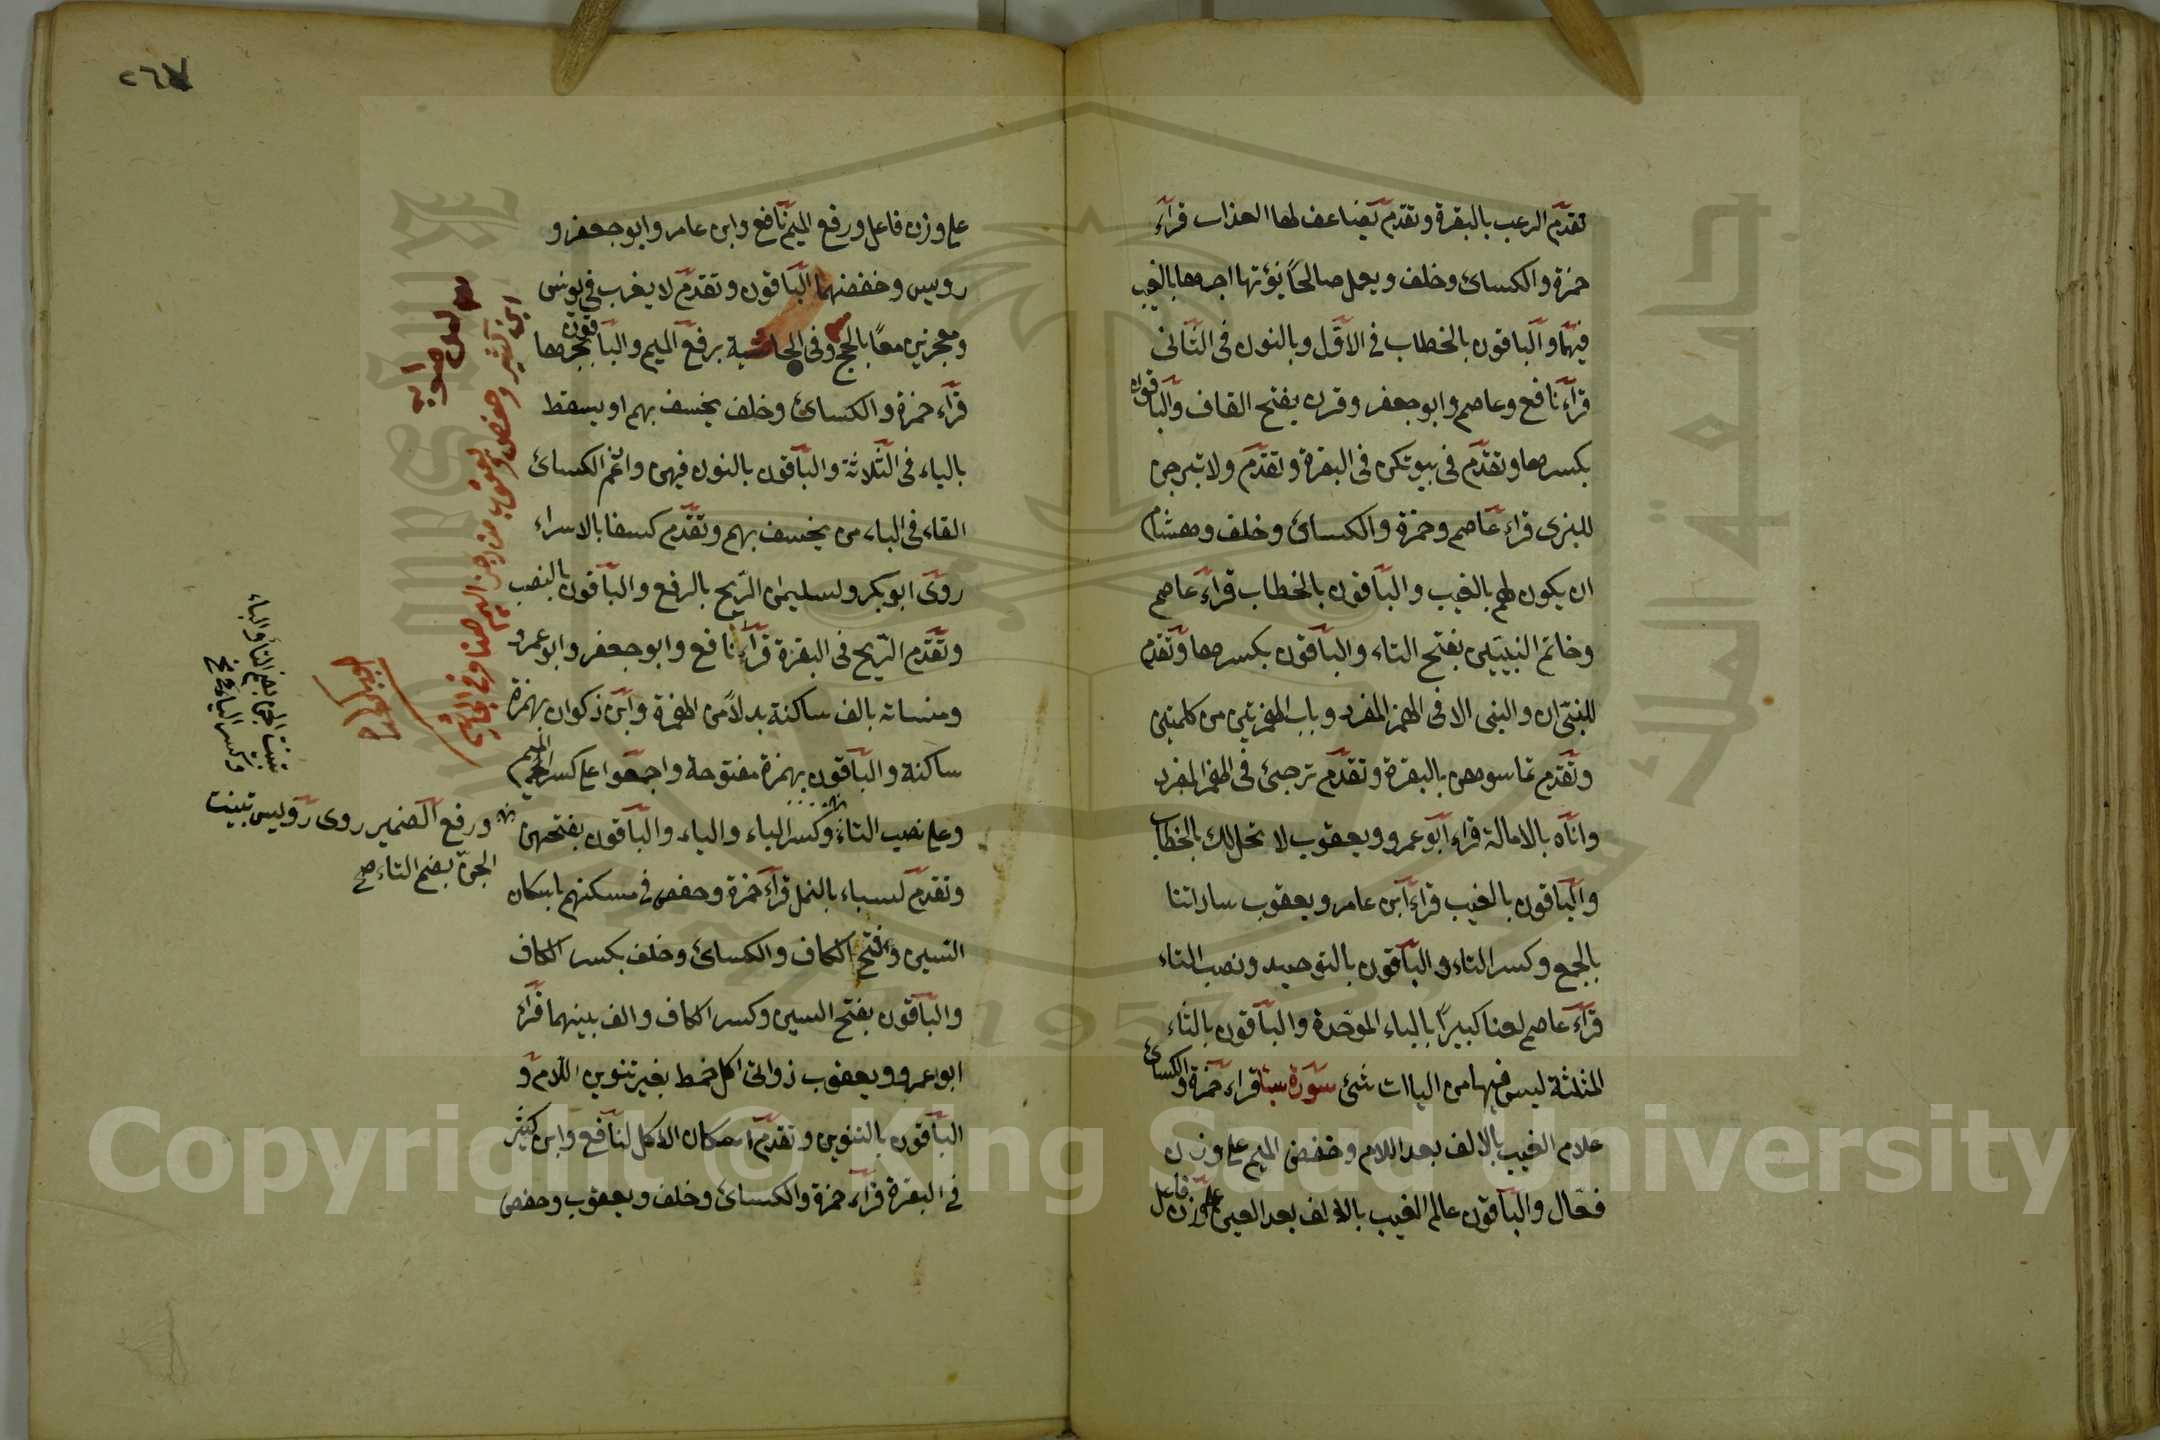 تقدّم الرعب بالبقرة وتقدّم يضاعف لها العذاب قراء
حمزة والكسائ وخلف ويعمل صالحًا نؤتها اجرها بالغيب
فيهما والباقون بالخطاب في الاوّل وبالنون في الثاني
قراء نافع وعاصم وابو جعفر وقرن بفتح القاف والباقون
بكسرها وتقدّم في بيوتكن في البقرة وتقدّم ولا تبرجن
للبزى قراء عاصم وحمزة والكسائ وخلف وهشام
ان يكون لهم بالغيب والباقون بالخطاب قراء عاصم
وخاتم النبيين بفتح التاء والباقون بكسرها وتقدم
للنبئ ان والنبى الا في الهمز المفرد وباب الهمزتين من كلمتين
وتقدم تماسوهن بالبقرة وتقدّم ترجئ في الهمز المفرد
واناه بالامالة قراء ابو عمرو ويعقوب لا تحل لك بالخطاب
والباقون بالغيب قراء ابن عامر ويعقوب ساداتنا
بالجمع وكسر التاء والباقون بالتوحيد ونصب التاء
قراء عاصم لعنا كبيرًا بالباء الموحدة والباقون بالثاء
المثلثة ليس فيها من الياات شئ سورة سبا قراء حمزة والكسائ
علام الغيب بالالف بعد اللام وخفض الميم على وزن
فعّال والباقون عالم الغيب بالالف بعد العين على وزن فاعل
٢٦٧
على وزن فاعل ورفع الميم نافع وابن عامر وابو جعفر و
رويس وخفضهما الباقون وتقدّم لا يعزب في يونس
ومعجزين معًا بالحج وفي الجاثية برفع الميم والباقون بجرها
قراء حمزة والكسائ وخلف يخسف بهم او يسقط
بالياء في الثّلاثة والباقون بالنون فيهن وادغم الكسائ
الفاء في الباء من يخسف بهم وتقدّم كسفا بالاسراء
روى ابو بكر ولسليمان الرّيح بالرفع والباقون بالنصب
وتقدّم الرّيح في البقرة قراء نافع وابو جعفر وابو عمرو
ومنساته بالف ساكنة بدلاً من الهمزة وابن ذكوان بهمزة
ساكنة والباقون بهمزة مفتوحة واجمعوا على كسر الميم
وعلى نصب التاء وكسر الباء والياء والباقون بفتحهن
وتقدّم لسباء بالنمل قراء حمزة وحفص في مسكنهم باسكان
السين وفتح الكاف والكسائ وخلف بكسر الكاف
والباقون بفتح السين وكسر الكاف والف بينهما قراء
ابو عمرو ويعقوب ذواتى اكل خمط بغير تنوين اللام و
الباقون بالتنوين وتقدّم اسكان الاكل لنافع وابن كثير
في البقرة قراء حمزة والكسائ وخلف ويعقوب وحفص
لعل صوابه
ابن كثير وحفص ويعقوب من رجز اليم هنا وفي الجاثية
ورفع الضمير روى رويس تبينت
الجن بضم التاء صح
تبينت الجن بضم التاء والباء
وكسر الياء
Copyright © King Saud University
جامعة الملك سعود
1957